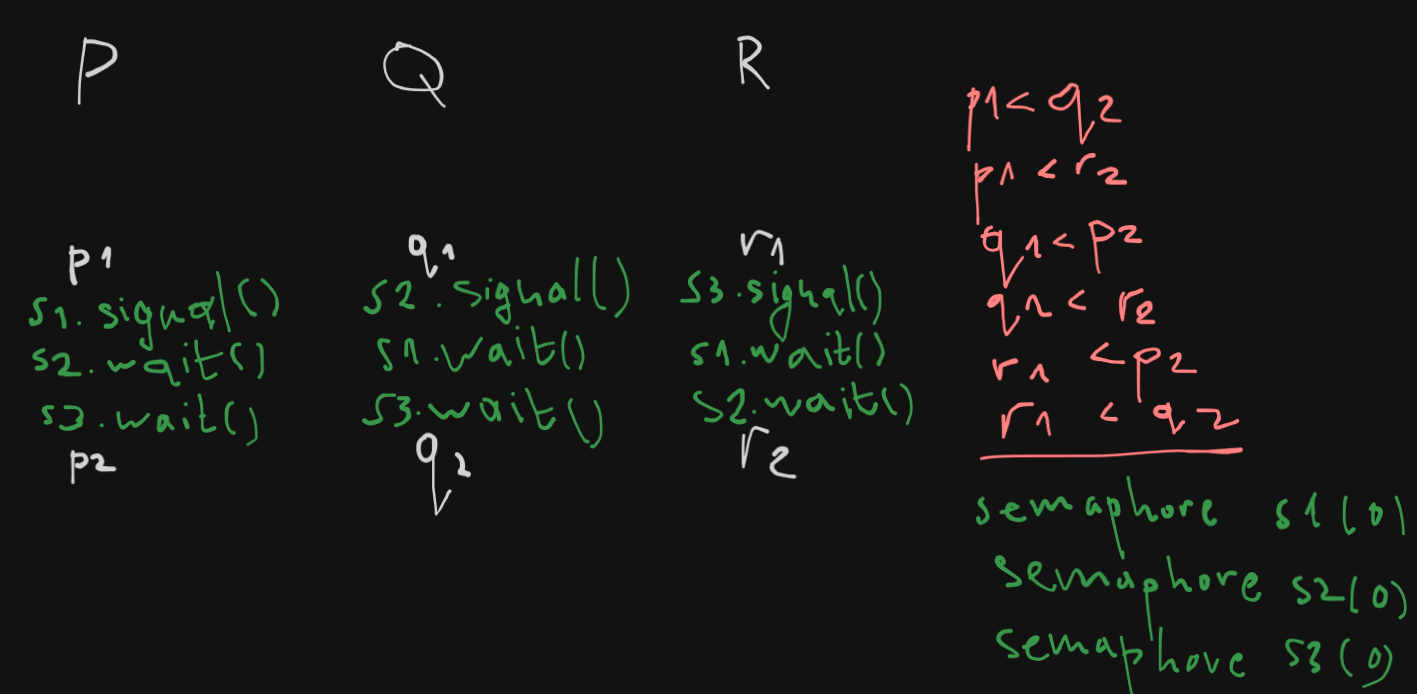 P
p1
s1.signal()
s2.wait()
s3.wait()
p2
Q
q1
s2.signal()
s1.wait()
s3.wait()
q2
R
r1
s3.signal()
s1.wait()
s2.wait()
r2
p1 < q2
p1 < r2
q1 < p2
q1 < r2
r1 < p2
r1 < q2
semaphore s1(0)
semaphore s2(0)
semaphore s3(0)